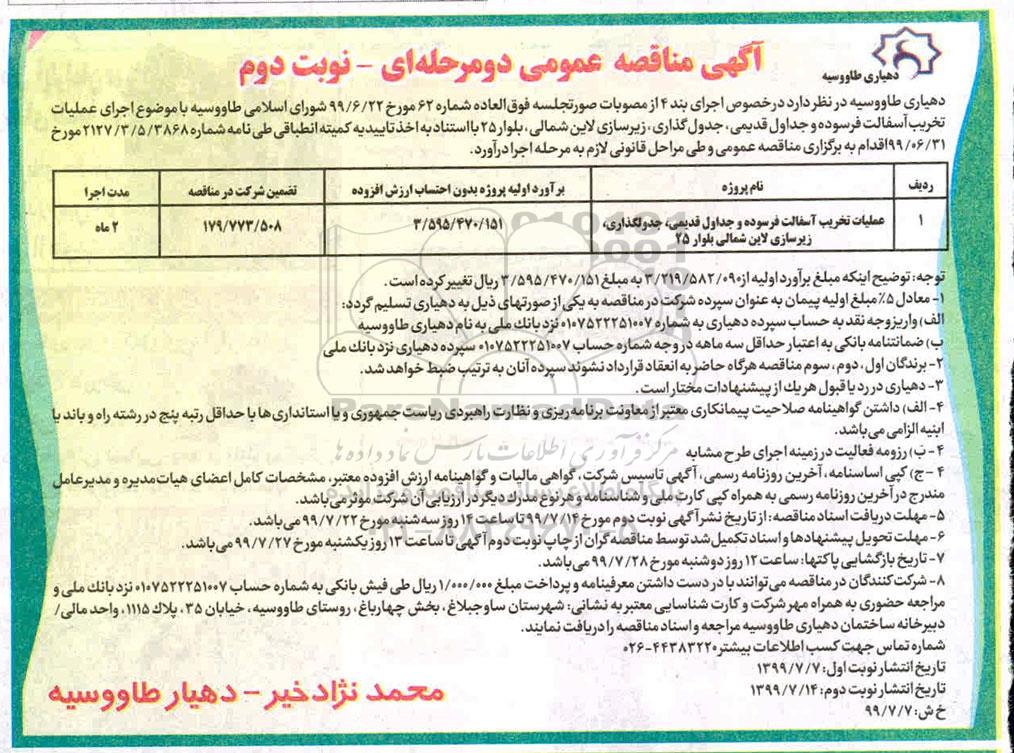 دهیاری طاووسیه
آگهی مناقصه عمومی دومرحله‌ای - نوبت دوم
دهیاری طاووسیه در نظر دارد درخصوص اجرای بند ۴ از مصوبات صورتجلسه فوق‌العاده شماره ۶۲ مورخ ۹۹/۶/۲۲ شورای اسلامی طاووسیه با موضوع اجرای عملیات
تخریب آسفالت فرسوده و جداول قدیمی، جدول گذاری، زیرسازی لاین شمالی، بلوار ۲۵ با استناد به اخذ تاییدیه کمیته انطباقی طی نامه شماره ۲۱۲۷/۳/۵/۳۸۶۸ مورخ
۹۹/۰۶/۳۱ اقدام به برگزاری مناقصه عمومی و طی مراحل قانونی لازم به مرحله اجرا درآورد.
ردیف نام پروژه برآورد اولیه پروژه بدون احتساب ارزش افزوده تضمین شرکت در مناقصه مدت اجرا
۱ عملیات تخریب آسفالت فرسوده و جداول قدیمی، جدولگذاری، ۳/۵۹۵/۴۷۰/۱۵۱ ۱۷۹/۷۷۳/۵۰۸ ۲ ماه
زیرسازی لاین شمالی بلوار ۲۵
توجه: توضیح اینکه مبلغ برآورد اولیه از ۳/۲۱۹/۵۸۲/۰۹۰ به مبلغ ۳/۵۹۵/۴۷۰/۱۵۱ ریال تغییر کرده است.
۱- معادل ۵٪ مبلغ اولیه پیمان به عنوان سپرده شرکت در مناقصه به یکی از صورتهای ذیل به دهیاری تسلیم گردد:
الف) واریز وجه نقد به حساب سپرده دهیاری به شماره ۰۱۰۷۵۲۲۲۵۱۰۰۷ نزد بانك ملی به نام دهیاری طاووسیه
ب) ضمانتنامه بانکی به اعتبار حداقل سه ماهه در وجه شماره حساب ۰۱۰۷۵۲۲۲۵۱۰۰۷ سپرده دهیاری نزد بانك ملی
۲- برندگان اول، دوم، سوم مناقصه هرگاه حاضر به انعقاد قرارداد نشوند سپرده آنان به ترتیب ضبط خواهد شد.
۳- دهیاری در رد یا قبول هر یك از پیشنهادات مختار است.
۴- الف) داشتن گواهینامه صلاحیت پیمانکاری معتبر از معاونت برنامه ریزی و نظارت راهبردی ریاست جمهوری و یا استانداری ها با حداقل رتبه پنج در رشته راه و باند یا
ابنیه الزامی می‌باشد.
۴- ب) رزومه فعالیت در زمینه اجرای طرح مشابه
۴- ج) کپی اساسنامه، آخرین روزنامه رسمی، آگهی تاسیس شرکت، گواهی مالیات و گواهینامه ارزش افزوده معتبر، مشخصات کامل اعضای هیات مدیره و مدیرعامل
مندرج در آخرین روزنامه رسمی به همراه کپی کارت ملی و شناسنامه و هر نوع مدرك دیگر در ارزیابی آن شرکت موثر می‌باشد.
۵- مهلت دریافت اسناد مناقصه: از تاریخ نشر آگهی نوبت دوم مورخ ۹۹/۷/۱۴ تا ساعت ۱۴ روز سه شنبه مورخ ۹۹/۷/۲۲ می‌باشد.
۶- مهلت تحویل پیشنهادها و اسناد تکمیل شد توسط مناقصه گران از چاپ نوبت دوم آگهی تا ساعت ۱۳ روز یکشنبه مورخ ۹۹/۷/۲۷ می‌باشد.
۷- تاریخ بازگشایی پاکتها: ساعت ۱۲ روز دوشنبه مورخ ۹۹/۷/۲۸ می‌باشد.
۸- شرکت کنندگان در مناقصه می‌توانند با در دست داشتن معرفینامه و پرداخت مبلغ ۱/۰۰۰/۰۰۰ ریال طی فیش بانکی به شماره حساب ۰۱۰۷۵۲۲۲۵۱۰۰۷ نزد بانك ملی و
مراجعه حضوری به همراه مهر شرکت و کارت شناسایی معتبر به نشانی: شهرستان ساوجبلاغ، بخش چهارباغ، روستای طاووسیه، خیابان ۳۵، پلاك ۱۱۱۵، واحد مالی/
دبیرخانه ساختمان دهیاری طاووسیه مراجعه و اسناد مناقصه را دریافت نمایند.
شماره تماس جهت کسب اطلاعات بیشتر ۴۴۳۸۳۲۲۰-۰۲۶
تاریخ انتشار نوبت اول: ۱۳۹۹/۷/۷
تاریخ انتشار نوبت دوم: ۱۳۹۹/۷/۱۴
خ ش: ۹۹/۷/۷
محمد نژاد خیر - دهیار طاووسیه
ParsNamadData
مرکز فرآوری اطلاعات پارس نماد داده ها